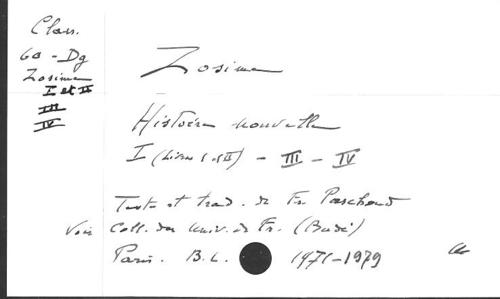 Class.
60 - Dg
Zosime
I et II
III
IV
Zosime
Histoire nouvelle
I (Livres I et II) - III - IV
Texte et trad. de Fr. Paschoud
Voir Coll. des Univ. de Fr. (Budé)
Paris. B.L. 1971-1979